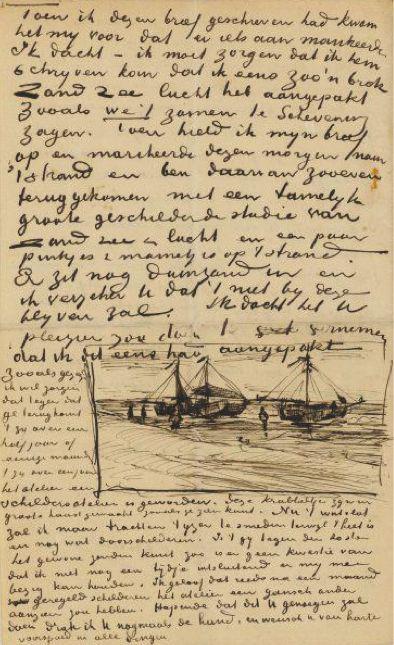 Toen ik dezen brief geschreven had kwam
het my voor dat er iets aan mankeerde.
Ik dacht – ik moet zorgen dat ik hem
schryven kan dat ik eens zoo'n brok
zand zee lucht heb aangepakt
zooals we't zamen te Schevening
zagen. Toen hield ik myn brief
op en marcheerde dezen morgen naar
't strand en ben daarvan zooeven
teruggekomen met een tamelyk
groote geschilderde studie van
zand zee & lucht en een paar
pinkjes & mannetjes op 't strand.
Er zit nog duinzand in en
ik verzeker U dat 't niet by deze
blyven zal. Ik dacht het U
plezier zou doen
dat ik dit eens had aangepakt
zooals gezegd
ik wil zorgen
dat tegen dat
ge terugkomt
't zy over een
half jaar of
maand
't zy over een jaar
het atelier een
schildersatelier is geworden. deze krabbeltjes zyn in
groote haast gemaakt zooals ge zien kunt. Nu 't vlot
zal ik maar trachten 't yzer te smeden terwyl 't heet is
en nog wat doorschilderen. Is 't gy tegen den
het gewone zenden kunt zoo is er geen kwestie van
dat ik niet nog een tydje uitsluitend er my mee
bezig kan houden. Ik geloof dat reeds na een maand
geregeld schilderen het atelier een gansch ander
aanzien zou hebben. Hopende dat dit U genoegen zal
doen druk ik U nogmaals de hand, en wensch U van harte
voorspoed in alle dingen